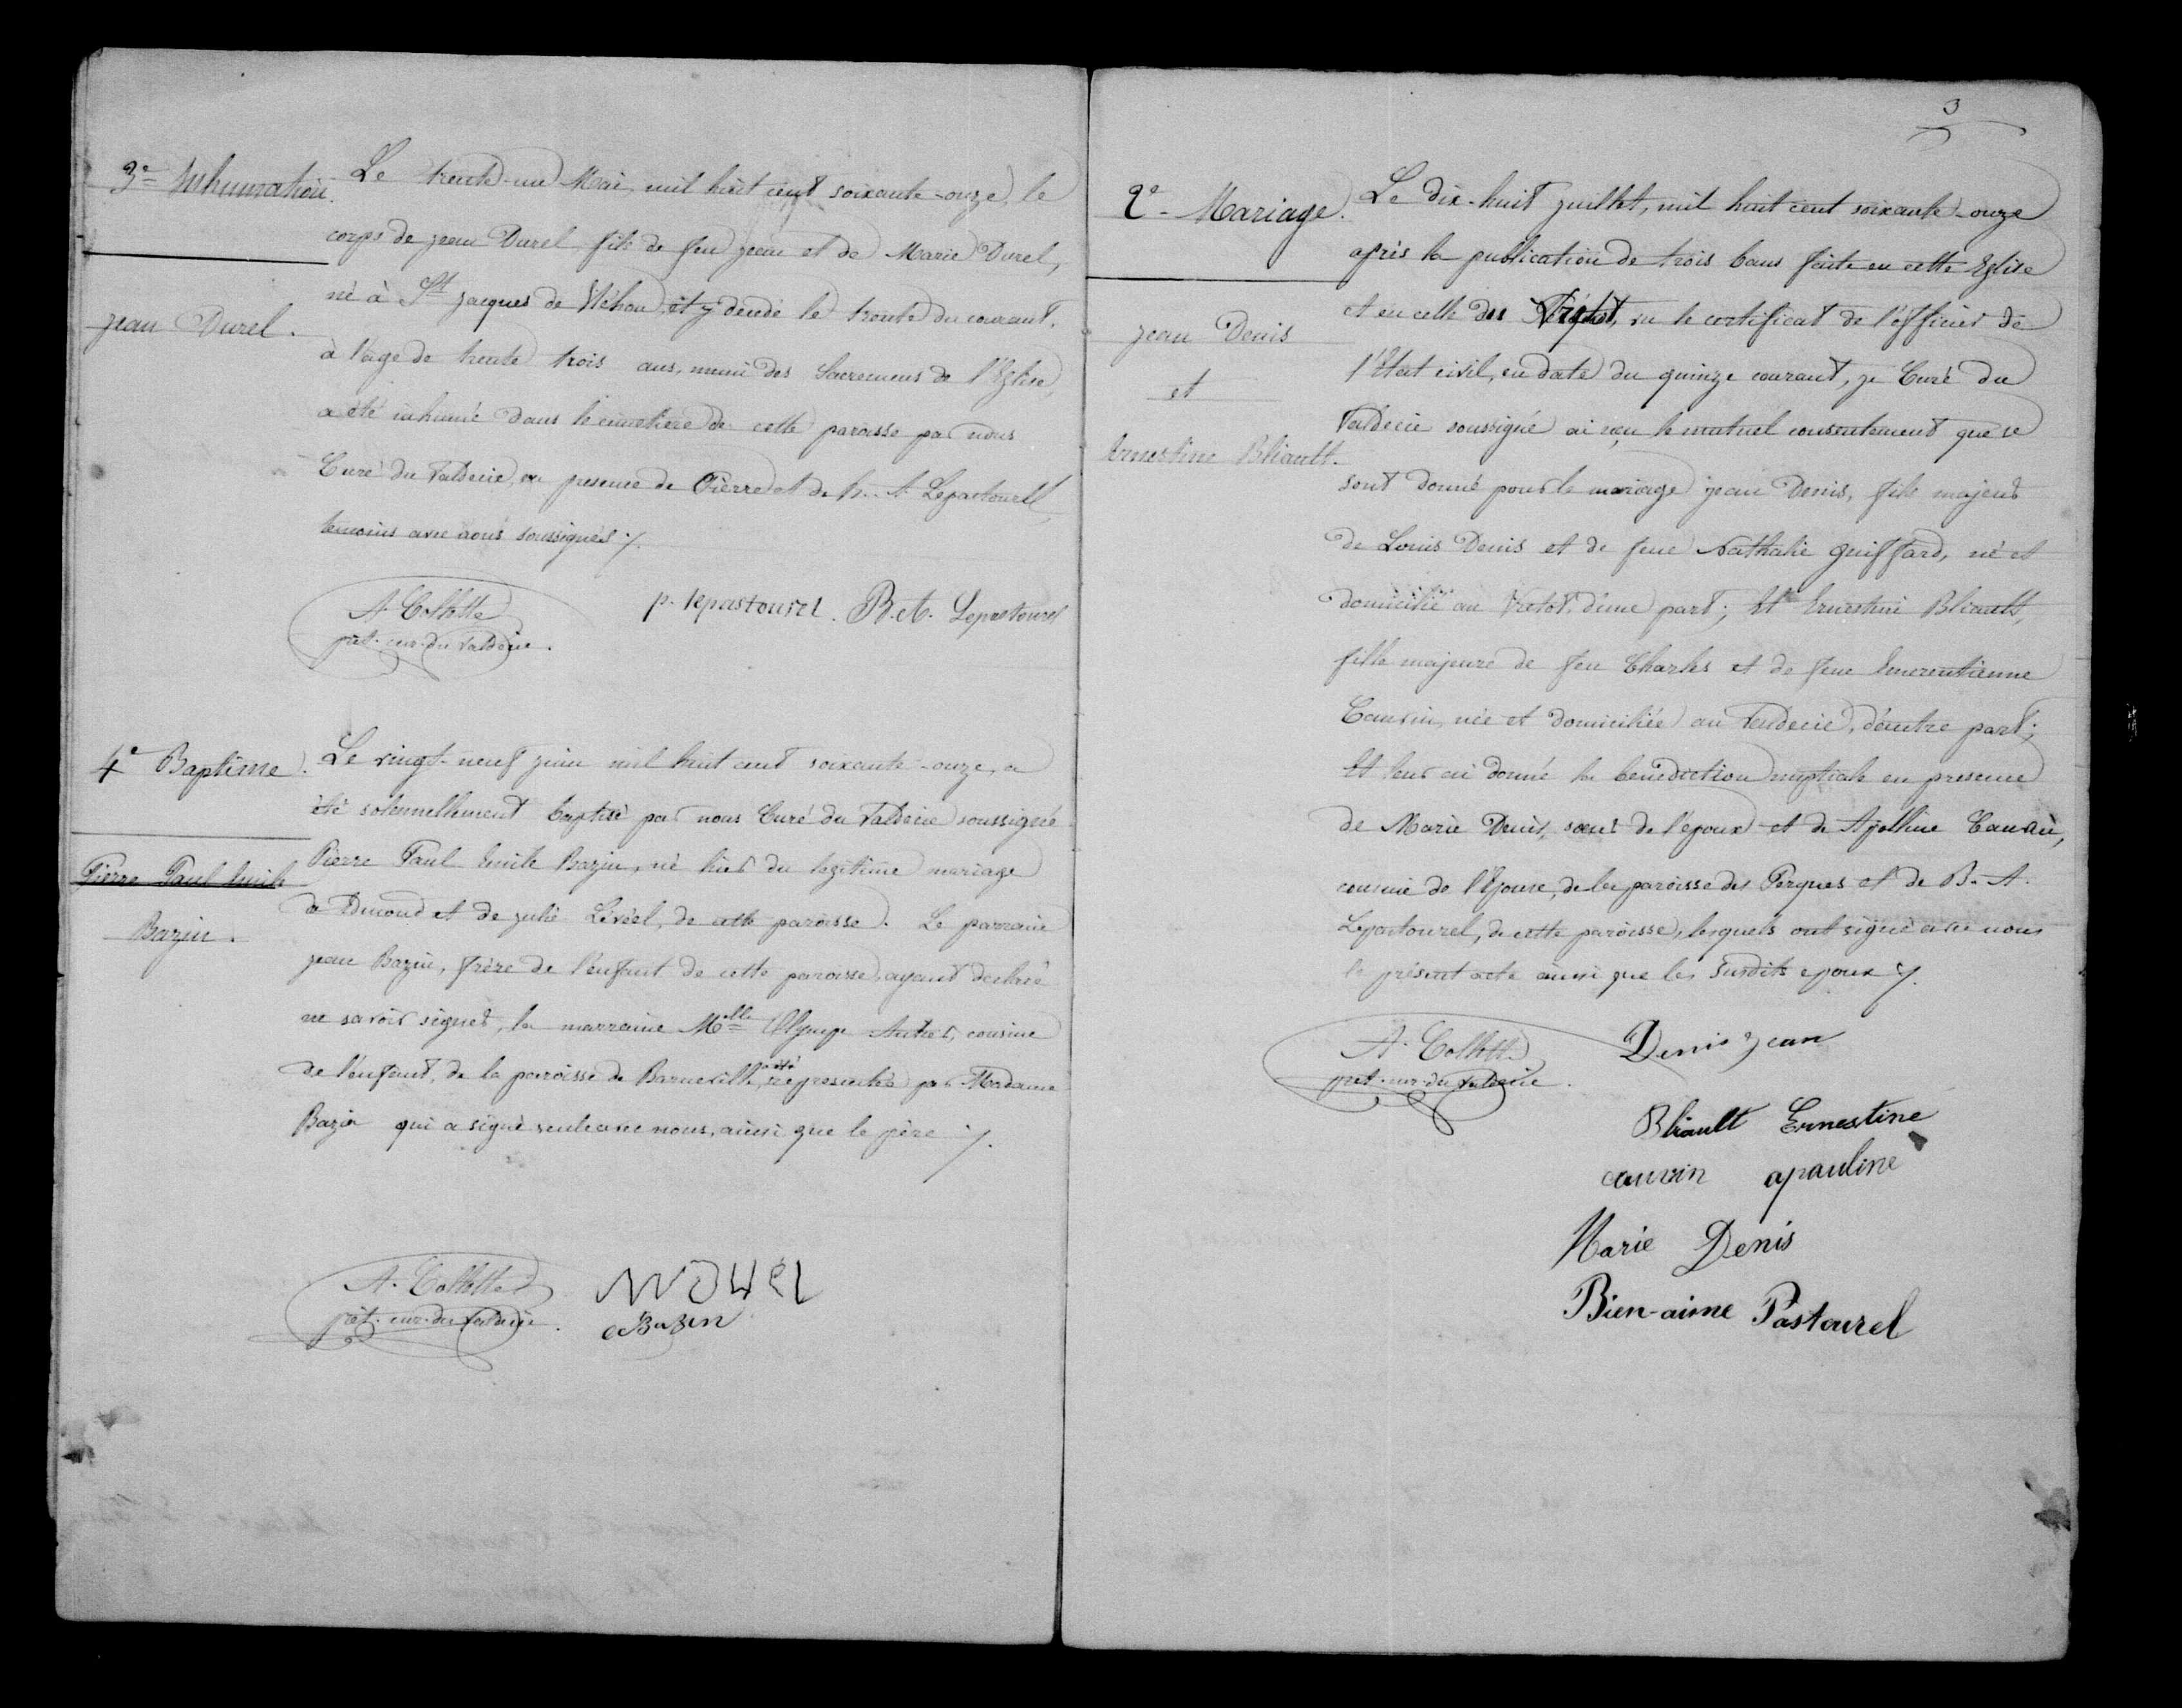 3e Inhumation.
Jean Durel.
Le trente-un Mai mil huit cent soixante-onze, le
corps de Jean Durel fils de feu Jean et de Marie Durel,
né à St Jacques de Néhou et y décédé le trente du courant,
à l'âge de trente trois ans, muni des Sacremens de l'Eglise,
a été inhumé dans le cimetière de cette paroisse par nous
Curé du Valdécie, en presence de Pierre et de B. A. Lepastourel
temoins avec nous soussignés ./.
A. Collette
prêt. cur. du Valdécie.
p. lepastourel. B. A. Lepastourel
4e Baptême.
Pierre Paul Emile
Bazin.
Le vingt-neuf juin mil huit cent soixante-onze, a
été solennellement baptisé par nous Curé du Valdécie soussigné
Pierre Paul Emile Bazin, né hier du legitime mariage
de et de Julie Lévéel, de cette paroisse. Le parrain
Jean Bazin, frère de l'enfant de cette paroisse, ayant declaré
ne savoir signer, la marraine Melle Olympe cousine
de l'enfant, de la paroisse de Barneville, a été représentée par Madame
Bazin qui a signé seule avec nous, ainsi que le père ./.
A. Collette
prêt. cur. du Valdécie.
Bazin
3
2e Mariage.
Jean Denis
et
Ernestine Bliault.
Le dix-huit juillet, mil huit cent soixante-onze
après la publication de trois bans faite en cette Eglise
et en celle du Vrétot, vu le certificat de l'officier de
l'Etat civil, en date du quinze courant, je Curé du
Valdécie soussigné ai reçu le mutuel consentement que se
sont donné pour le mariage Jean Denis, fils majeur
de Louis Denis et de feue Nathalie Guiffard, né et
domicilié au Vretot, d'une part; Et Ernestine Bliault,
fille majeure de feu Charles et de feue Emerentienne
Cauvin, née et domiciliée au Valdecie, d'autre part;
Et leur ai donné la bénédiction nuptiale en presence
de Marie Denis, sœur de l'epoux et de Apolline Cauvin,
cousine de l'Epouse, de la paroisse des Perques et de B. A.
Lepastourel, de cette paroisse, lesquels ont signé avec nous
le présent acte ainsi que les susdits epoux ./.
A. Collette
prêt. cur. du Valdécie.
Denis Jean
Bliault Ernestine
cauvin apauline
Marie Denis
Bien-aime Pastourel